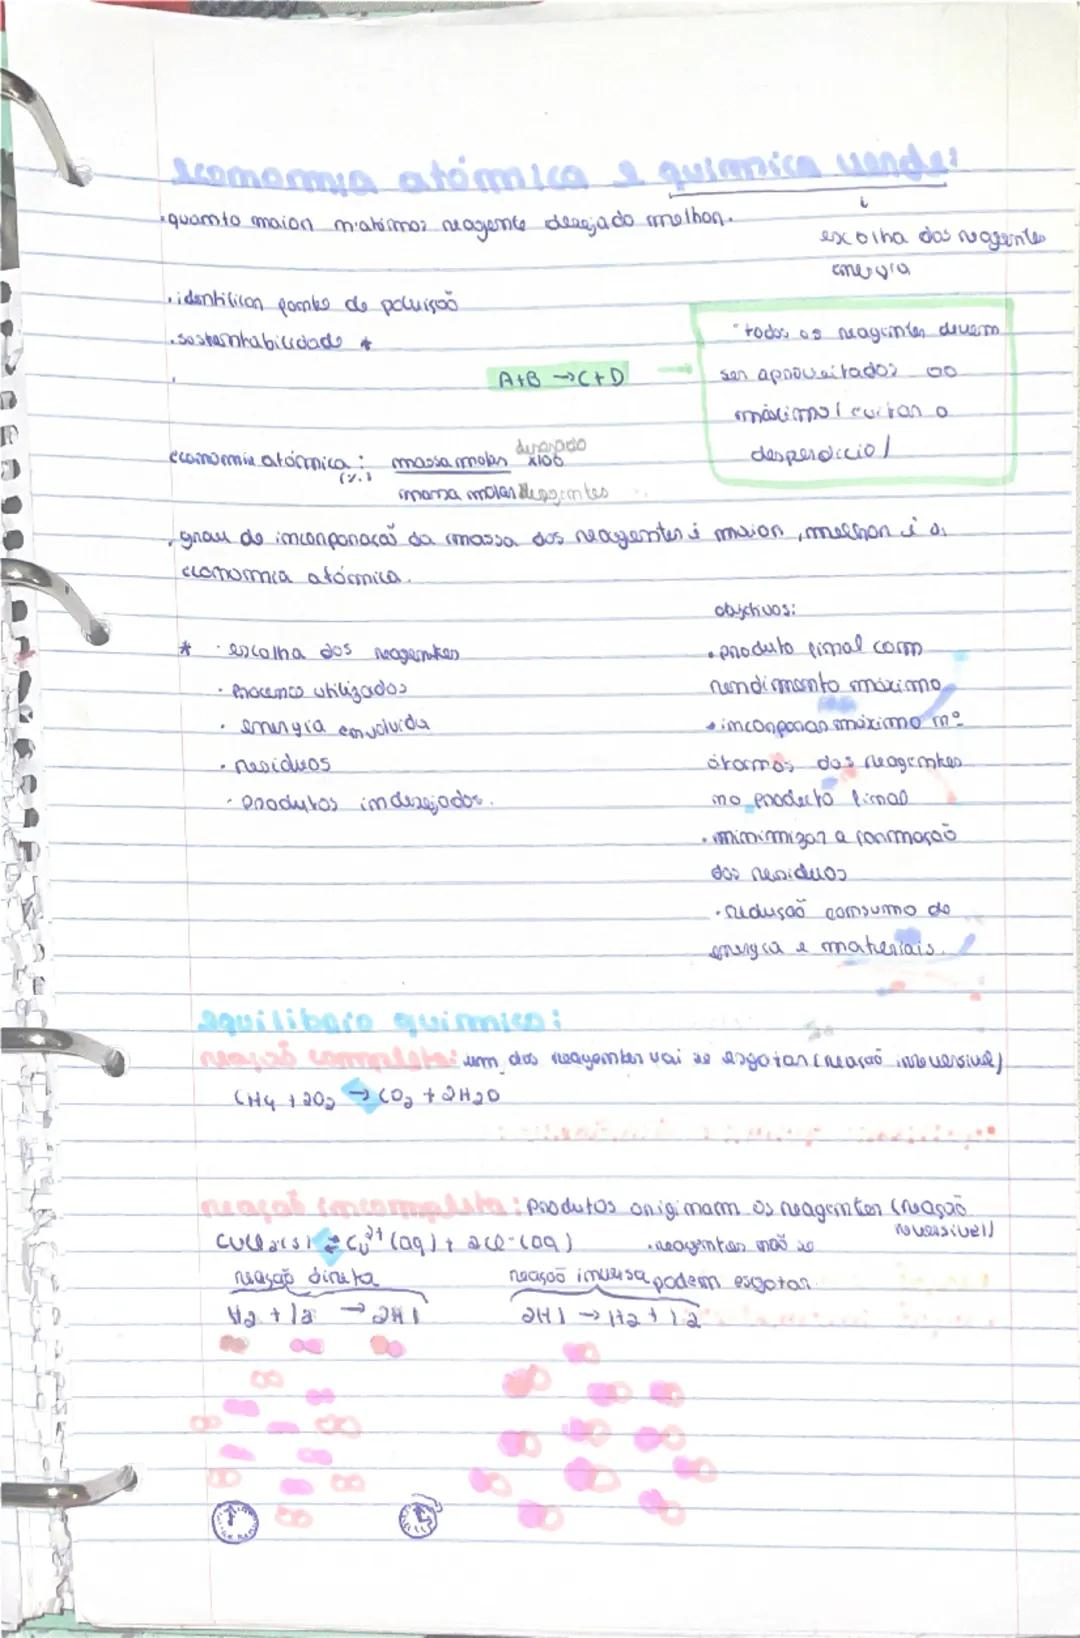 economia atómica e química verde:
• quanto maior n átomos reagente desejado melhor.
escolha dos reagentes
energia
• identificar fontes de poluição
• sustentabilidade *
A+B → C+D
"todos os reagentes devem
ser aproveitados ao
máximo / evitar o
desperdício /
economia atómica : massa molar desejado x100
(%)
massa molar reagentes
• grau de incorporação da massa dos reagentes é maior, melhor é a
economia atómica.
* · escolha dos reagentes
· Processo utilizados
· energia envolvida
· resíduos
· Produtos indesejados.
objetivos:
• produto final com
rendimento máximo
• incorporar máximo nº
átomos dos reagentes
no producto final
• minimizar a formação
dos resíduos
• redução consumo de
energia e materiais.
equilíbrio químico:
reação completa: um dos reagentes vai se esgotar (reação irreversível)
CH4 + 2O2 → CO2 + 2H2O
reação incompleta: Produtos originam os reagentes (reação
reversível)
CuCl2(s) ⇄ Cu²⁺(aq) + 2Cl⁻(aq)
• reagentes não se
podem esgotar.
reação direta
reação inversa
H2 + I2 → 2HI
2HI → H2 + I2